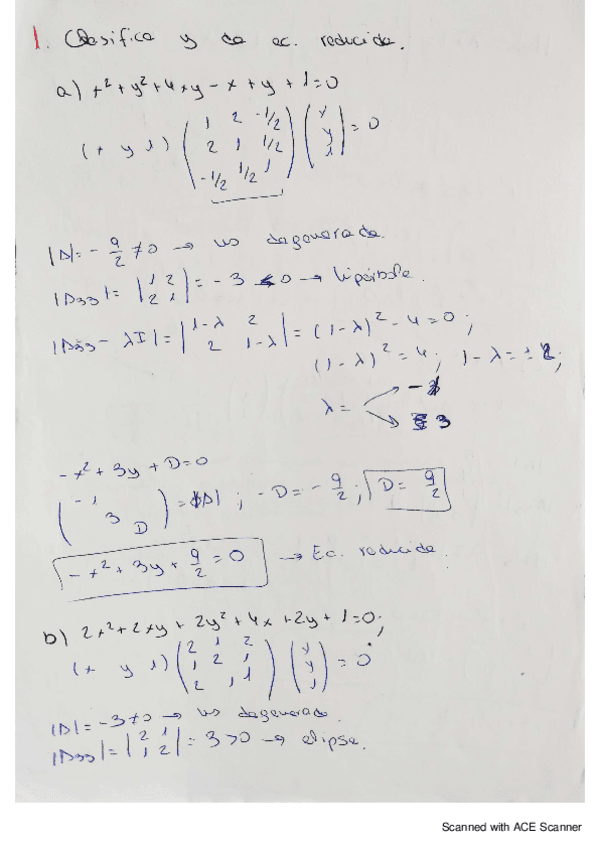 1. Clasifica y da ec. reducida.
a) x² + y² + 4xy - x + y + 1 = 0
(x y 1) ( 1 2 -1/2 ; 2 1 1/2 ; -1/2 1/2 1 ) ( x ; y ; 1 ) = 0
|A| = -9/2 ≠ 0 → no degenerada.
|A33| = | 1 2 ; 2 1 | = -3 < 0 → hipérbola.
|A33 - λI| = | 1-λ 2 ; 2 1-λ | = (1-λ)² - 4 = 0;
(1-λ)² = 4; 1-λ = ±2;
λ = -1
3
-x² + 3y + D = 0
( -1 3 D ) = |A| ; -D = -9/2 ; D = 9/2
-x² + 3y + 9/2 = 0 → Ec. reducida.
b) 2x² + 2xy + 2y² + 4x + 2y + 1 = 0;
(x y 1) ( 2 1 2 ; 1 2 1 ; 2 1 1 ) ( x ; y ; 1 ) = 0
|A| = -3 ≠ 0 → no degenerada.
|A33| = | 2 1 ; 1 2 | = 3 > 0 → elipse.
Scanned with ACE Scanner